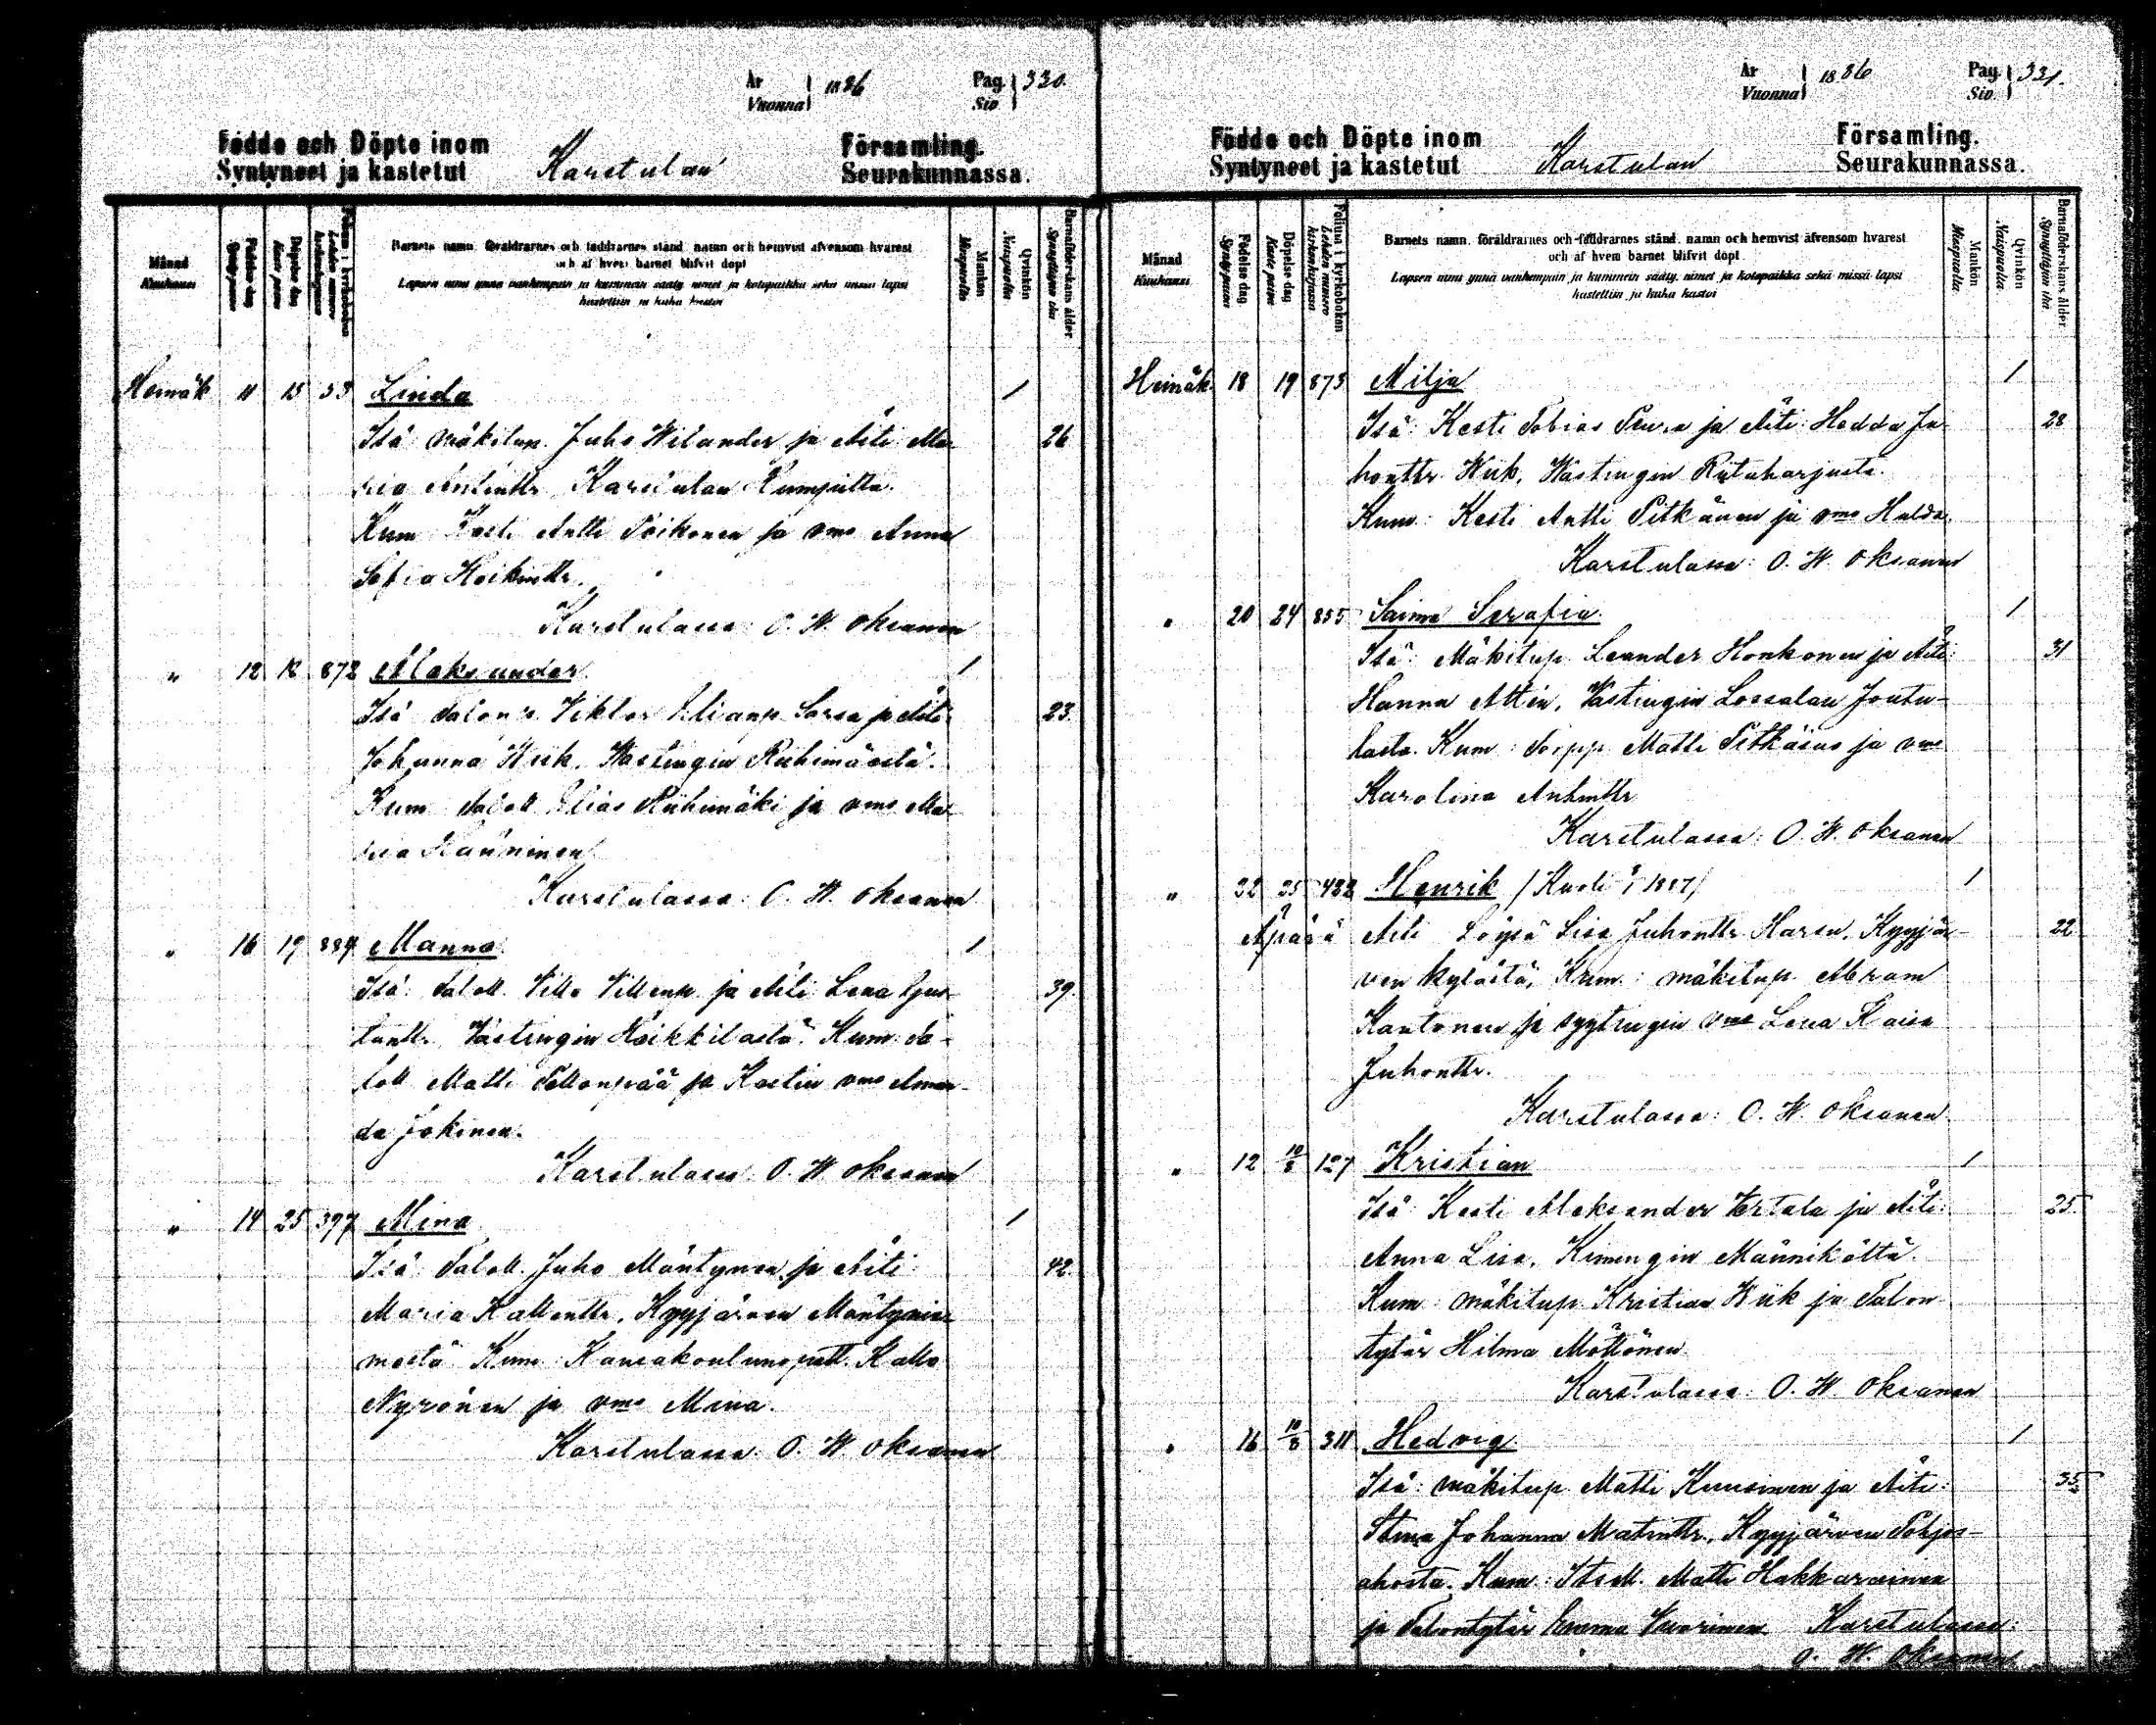 År Vuonna 1886 Pag. Siv. 330.
Födde och Döpte inom Församling.
Syntyneet ja kastetut Karstulan Seurakunnassa.
Månad Kuukausi
Födelse dag Syntypäivä
Döpelse dag Kaste päivä
Barnets namn, föräldrarnes och faddrarnes stånd, namn och hemvist äfvensom hvarest
och af hvem barnet blifvit döpt
Lapsen nimi ynnä vanhempain ja kummein sääty, nimet ja kotopaikka sekä missä lapsi
kastettiin ja kuka kastoi
Mankön Miespuolta
Qvinkön Vaispuolta
Barnaföderskans ålder
Heinäk 11 15 53 Linda 1
Isä mäkitup. Juho Wilander ja Äiti Ma- 26
ria Antintr. Karstulan
Kum Kesti Antti Poikonen ja vmo Anna
Sofia Heikintr.
Karstulassa: O. W. Oksanen
" 12 18 872 Aleksander 1
Isä Viktor Eliasp. Sorsa ja Äiti 23.
Johanna Wiik, Wastingin Riihimäestä.
Kum Taloll. Elias Riihimäki ja vmo Ma-
ria Känninen
Karstulassa: O. W. Oksanen
" 16 19 884 Manno 1
Isä: Taloll. Ville Villenp. ja Äiti Lena Kus- 39.
tantr. Västingin Heikkilästä. Kum: Ta-
loll Matti ja Kestin vmo Aman-
da Jokinen.
Karstulassa: O. W. Oksanen
" 14 25 397 Mina 1
Isä: Taloll. Juho Mäntynen ja Äiti: 42.
Maria Kallentr., Kyyjärven Mäntynie-
mestä Kum: Kansakoulunopett. Kalle
Nyrönen ja vmo Mina.
Karstulassa: O. W. Oksanen
År Vuonna 1886 Pag. Siv. 331.
Födde och Döpte inom Församling.
Syntyneet ja kastetut Karstulan Seurakunnassa.
Månad Kuukausi
Födelse dag Syntypäivä
Döpelse dag Kaste päivä
Folium i kyrkoboken Lehden numero kirkonkirjassa
Barnets namn, föräldrarnes och faddrarnes stånd, namn och hemvist äfvensom hvarest
och af hvem barnet blifvit döpt.
Lapsen nimi ynnä vanhempain ja kummein sääty, nimet ja kotopaikka sekä missä lapsi
kastettiin ja kuka kastoi
Mankön Miespuolta
Qvinkön Vaispuolta
Barnaföderskans ålder Synnyttäjän ikä
Heinäk. 18 19 873 Milja 1
Isä: Kesti Tobias Peura ja Äiti: Hedda Ju- 28
hontr. Wiik, Wastingin Riitaharjusta.
Kum: Kesti Antti Pitkänen ja vmo Hulda.
Karstulassa: O. W. Oksanen
" 20 24 855 Saima Serafia. 1
Isä: Mäkitup. Leander Honkonen ja Äiti: 31
Hanna Attin, Vastingin Lossalan Joutu-
lasta. Kum: Torpp. Matti Pitkäaho ja vmo
Karolina Antintr
Karstulassa: O. W. Oksanen
" 22 25 422 Henrik /Kuoli 1887/ 1
Äpärä Äiti Löysä Lisa Juhontr. Harsu, Kyyjär- 22
ven kylästä, Kum: mäkitup. Abram
Kantonen ja syytingin vmo Lena Kaisa
Juhontr.
Karstulassa: O. W. Oksanen
" 12 10/8 127 Kristian 1
Isä: Kesti Aleksander Kertala ja Äiti: 25.
Anna Lisa, Kimingin Männiköltä.
Kum: mäkitup. Kristian Wiik ja Talon
tytär Hilma Möttönen
Karstulassa: O. W. Oksanen
" 16 10/8 311 Hedvig 1
Isä: mäkitup. Matti Kuusinen ja Äiti: 35
Stina Johanna Matintr., Kyyjärven Pohjos-
ahosta. Kum: Itsell. Matti Hakkarainen
ja Talontytär Emma Vuorinen Karstulassa:
O. W. Oksanen